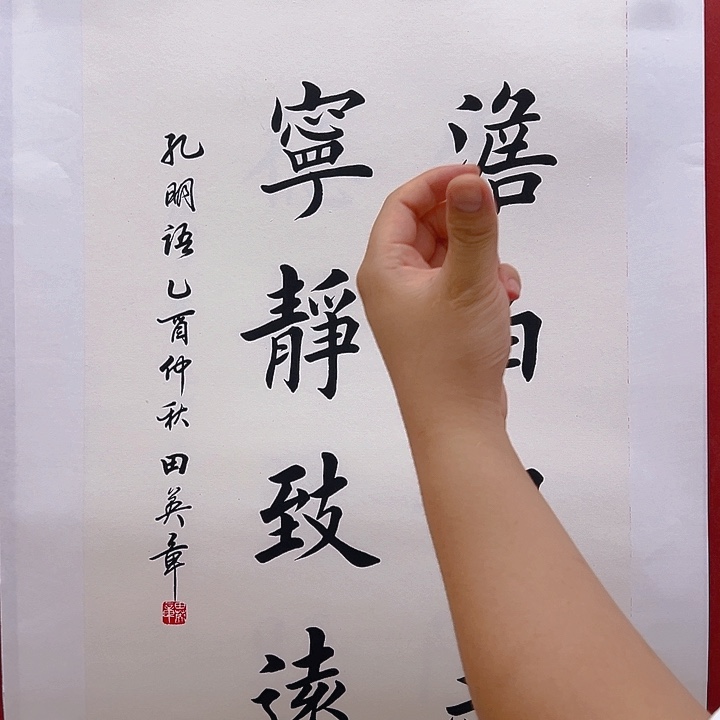 澹
寧靜致遠
孔明語乙酉仲秋田英章